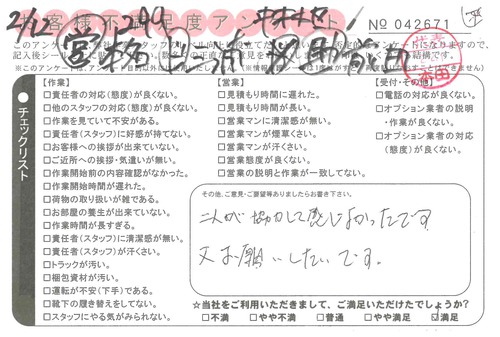 お客様不満足度アンケート
No 042671
2/12
代表 本田
チェックリスト
【作業】
□責任者の対応(態度)が良くない。
□他のスタッフの対応(態度)が良くない。
□作業を見ていて不安がある。
□責任者(スタッフ)に好感が持てない。
□お客様への挨拶が出来ていない。
□ご近所への挨拶・気遣いが無い。
□作業開始前の内容確認がなかった。
□作業開始時間が遅れた。
□荷物の取り扱いが雑である。
□お部屋の養生が出来ていない。
□作業時間が長すぎる。
□責任者(スタッフ)に清潔感が無い。
□責任者(スタッフ)が汗くさい。
□トラックが汚い。
□梱包資材が汚い。
□運転が不安(下手)である。
□靴下の履き替えをしてない。
□スタッフにやる気がみられない。
【営業】
□見積もり時間に遅れた。
□見積もり時間が長い。
□営業マンに清潔感が無い。
□営業マンが煙草くさい。
□営業マンが汗くさい。
□営業態度が良くない。
□営業の説明と作業が一致してない。
【受付・その他】
□電話の対応が良くない。
□オプション業者の説明
・作業が良くない。
□オプション業者の対応
(態度)が良くない。
その他、ご意見・ご要望等ありましたらお書き下さい。
二人が協力して感じよかったです
又お願いしたいです。
☆当社をご利用いただきまして、ご満足いただけたでしょうか?
□不満 □やや不満 □普通 □やや満足 ☑満足